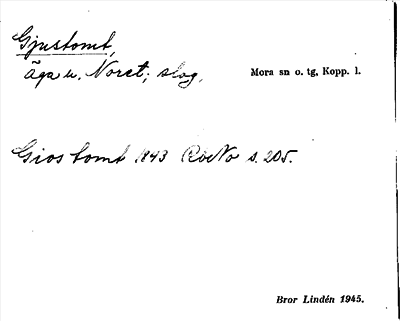 Gjustomt,
Äga u. Noret; slog.
Mora sn o. tg, Kopp. l.
Gios tomt 1843 RäNo s. 205.
Bror Lindén 1945.